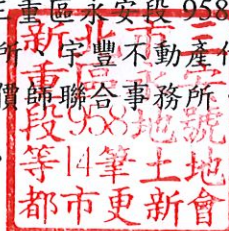 三重區永安段 958
所、宇豐不動產
價師聯合事務所、
新北市三
重區永安
段958地號
等14筆土地
都市更新會